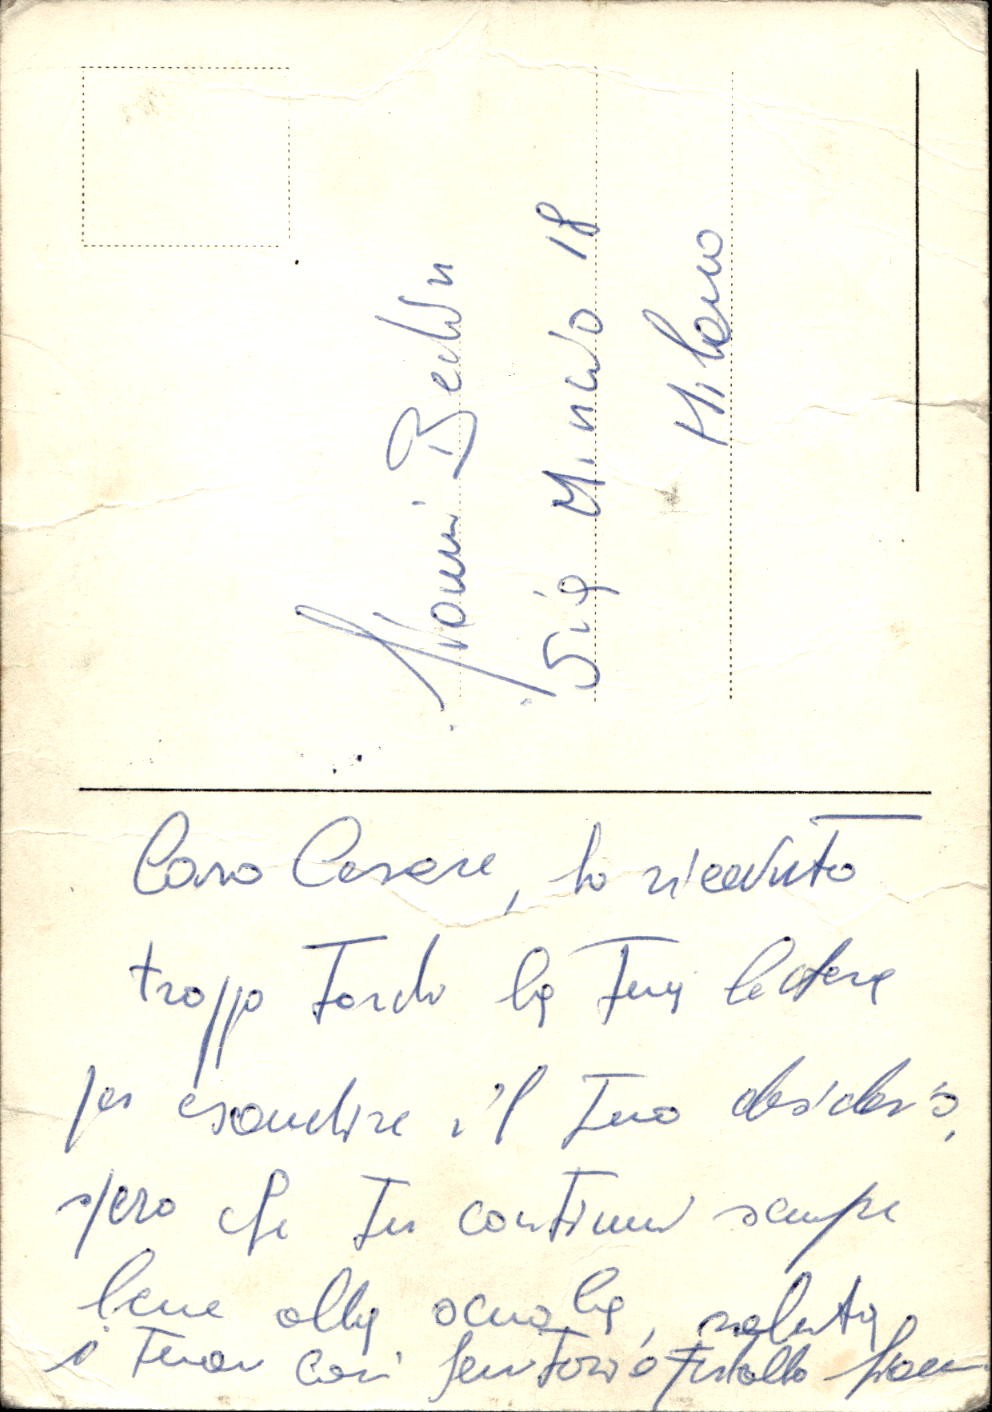 Bedin
Via Mincio 18
Milano
Caro Cesare, ho ricevuto
troppo tardi la Tua lettera
per esaudire il Tuo desiderio,
spero che Tu continui sempre
bene alla scuola, saluta
i Tuoi cari